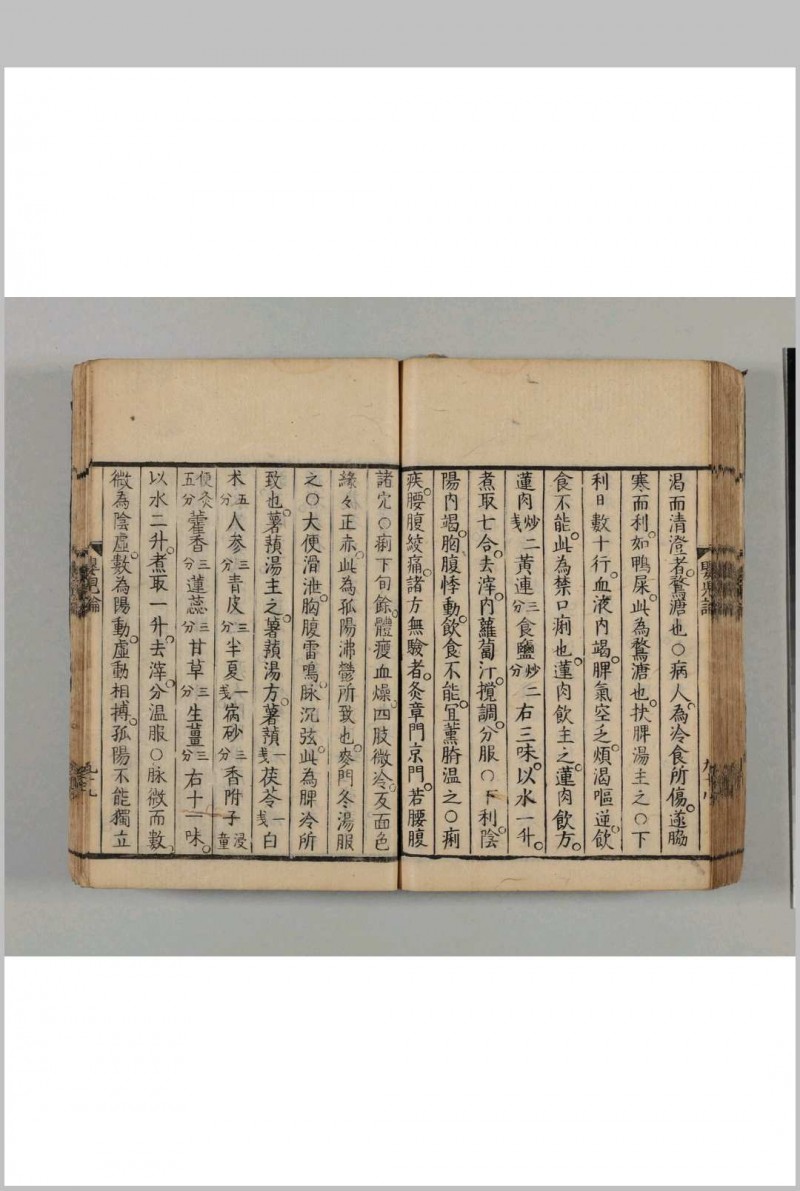 渴而清澄者。鶩溏也○病人。為冷食所傷。遂脇
寒而利。如鴨屎。此為鶩溏也。扶脾湯主之○下
利日數十行。血液内竭。脾氣空乏。煩渴嘔逆。飲
食不能。此為禁口痢也。蓮肉飲主之。蓮肉飲方。
蓮肉炒二戔黃連三分食鹽炒二分右三味。以水一升。
煮取七合。去滓。内蘿蔔汁。攪調。分服○下利。陰
陽内竭。胸腹悸動。飲食不能。宜薰臍温之○痢
疾。腰腹絞痛。諸方無驗者。灸章門京門。若腰腹
諸穴○痢下旬餘。體瘦血燥。四肢微冷。反面色
緣々正赤。此為孤陽沸鬱所致也。麥門冬湯服
之○大便滑泄。胸腹雷鳴。脉沉弦。此為脾冷所
致也。薯蕷湯主之。薯蕷湯方。薯蕷一戔茯苓一戔白
术五分人參三分青皮三分半夏一戔宿砂三分香附子浸童
便炙五分藿香三分蓮蕊三分甘草三分生薑三分右十一味。
以水二升。煮取一升。去滓。分温服○脉微而數。
微為陰虛。數為陽動。虛動相搏。孤陽不能獨立
嬰兒論
九十九